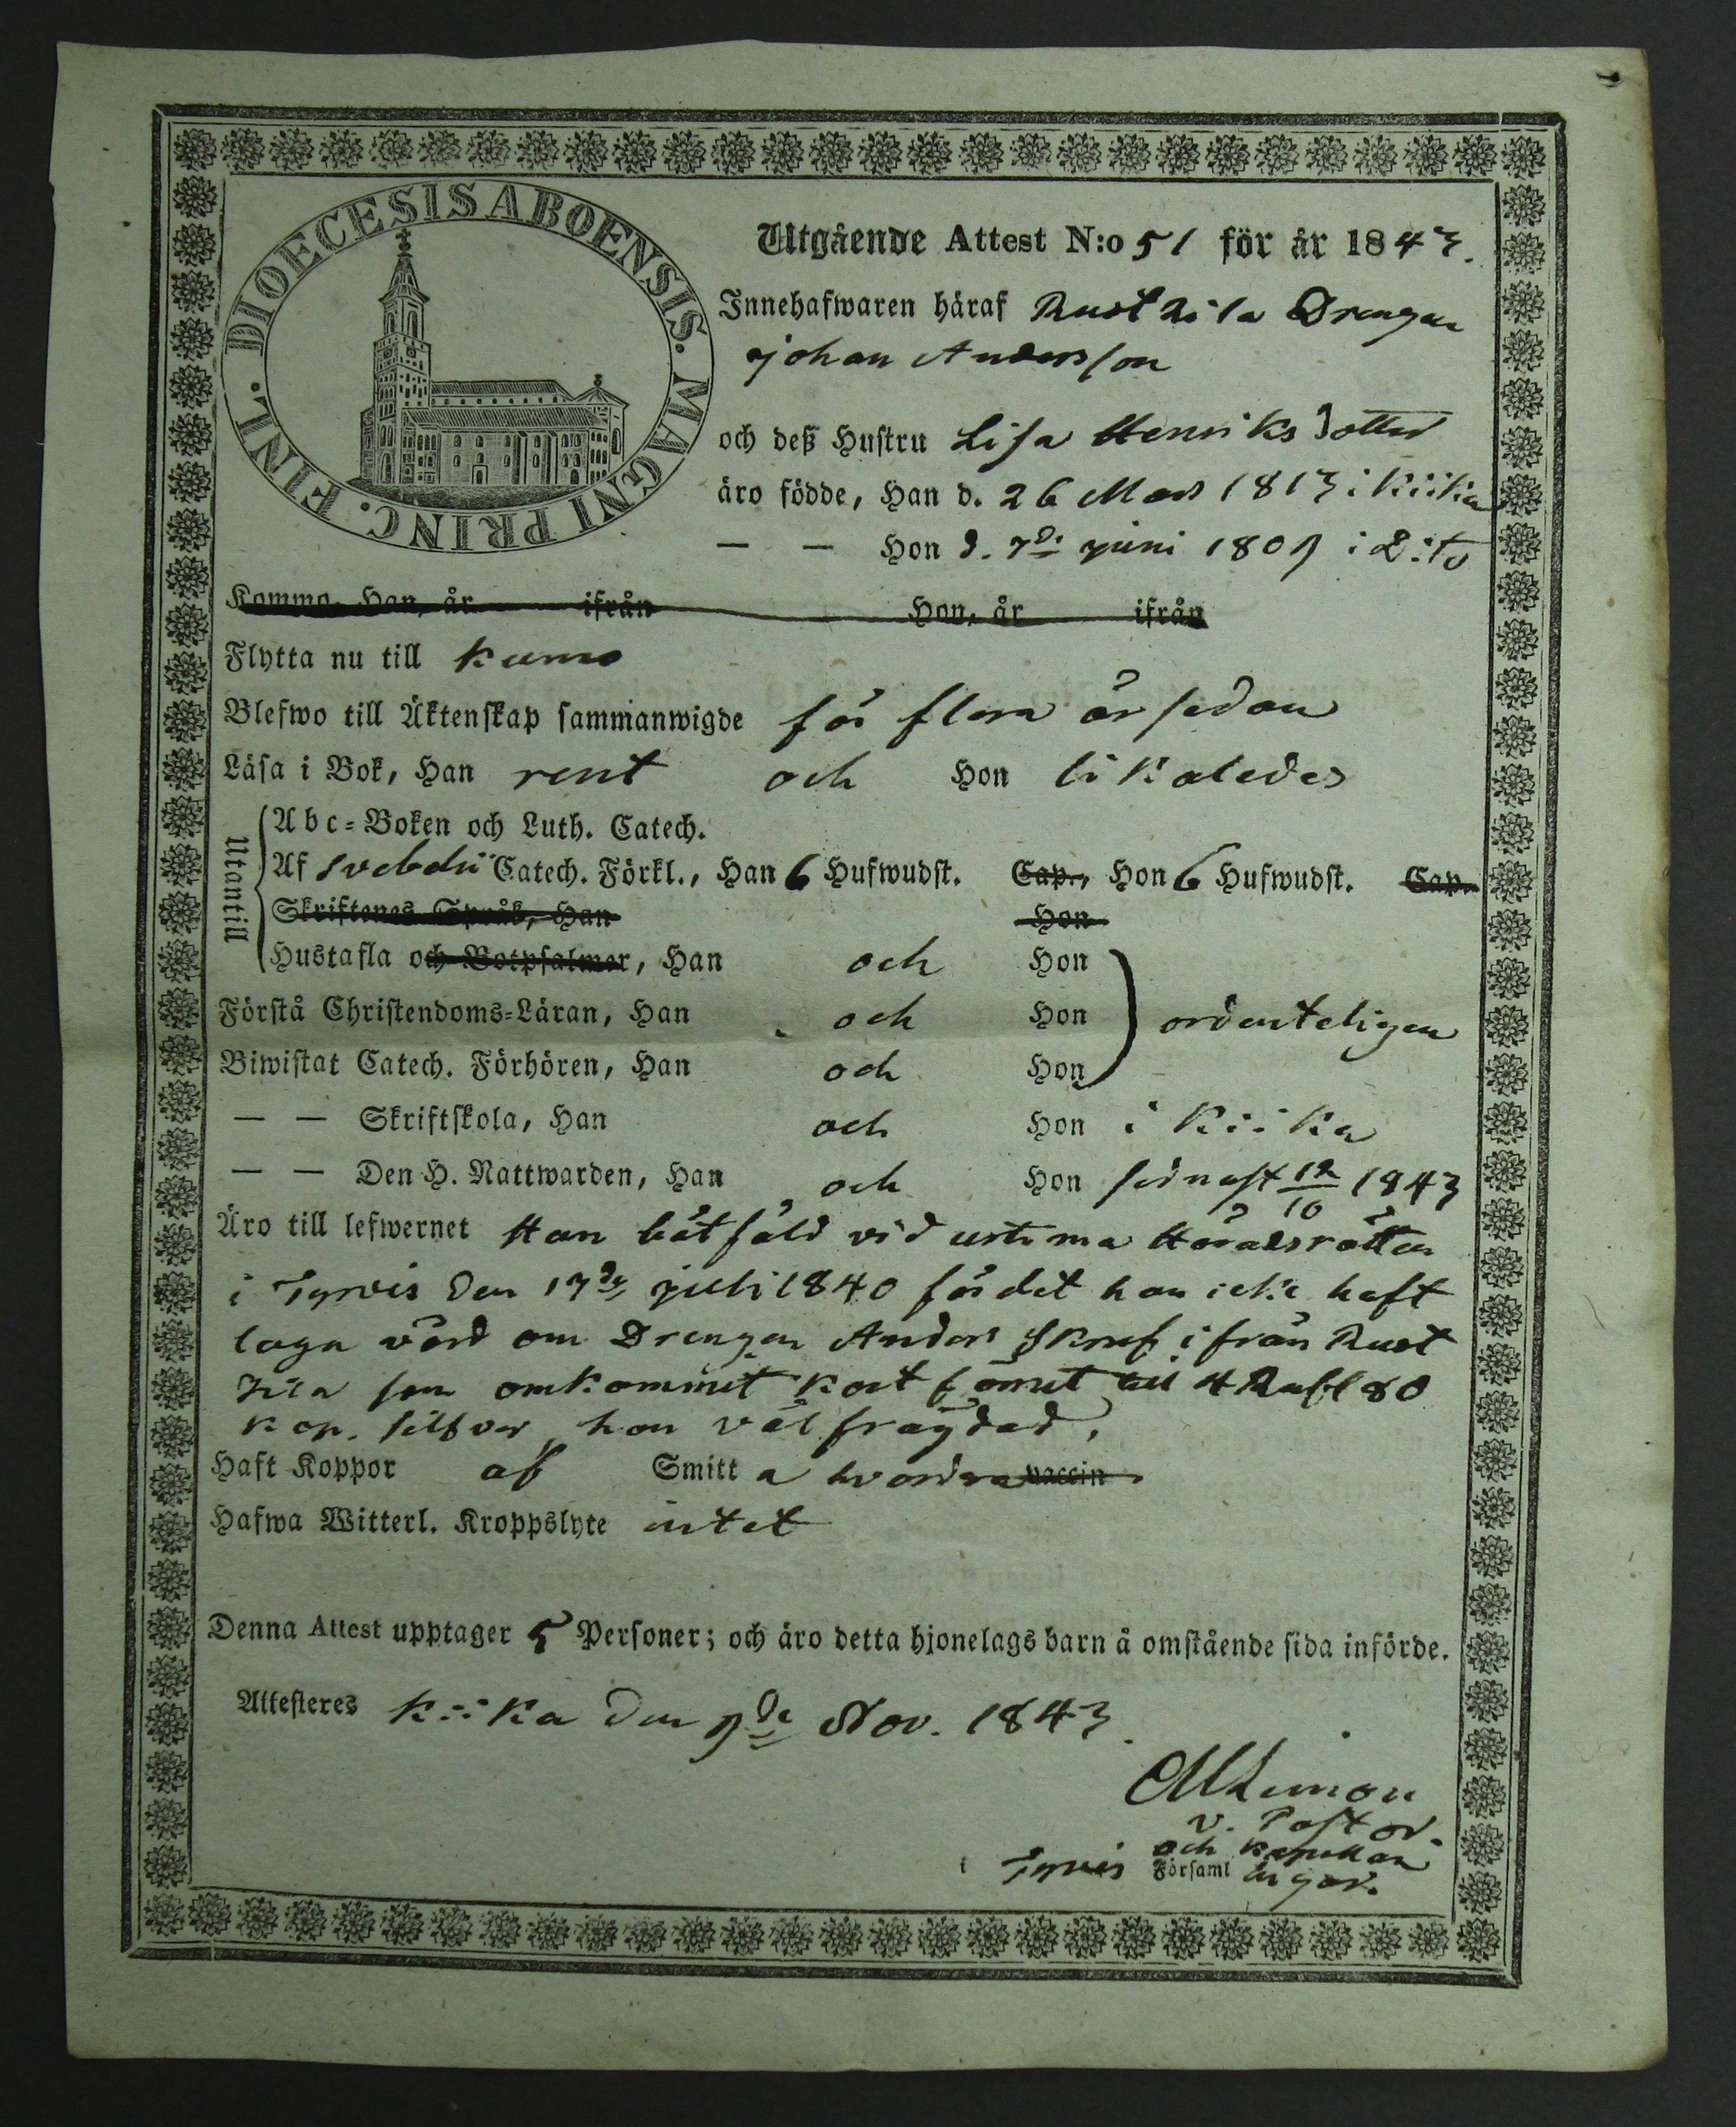 DIOECESIS ABOENSIS. MAGNI PRINC. FINL.
Utgående Attest N:o 51 för år 1843.
Innehafwaren häraf Rustkila Drengen
johan Andersson
och deß Hustru Lisa Henriksdotter
äro födde, Han d. 26 Mars 1813 i Kiika
— — Hon d. 7de juni 1809 i Dito
Komma, Han, år ifrån Hon, år ifrån
Flytta nu till Kumo
Blefwo till Äktenskap sammanwigde för flera år sedan
Läsa i Bok, Han rent och Hon likaledes
Utantill
Abc-Boken och Luth. Catech.
Af svebelii Catech. Förkl., Han 6 Hufwudst. Cap., Hon 6 Hufwudst. Cap.
Skriftenes Språk, Han Hon
Hustafla och Botpsalmer, Han och Hon
Förstå Christendoms-Läran, Han och Hon ordenteligen
Biwistat Catech. Förhören, Han och Hon
— — Skriftskola, Han och Hon i Kiika
— — Den H. Nattwarden, Han och Hon sednast 12/10 1843
Äro till lefwernet Han båtfäld vid urtima Häradsrätten
i Tyrvis den 17de juli 1840 för det han icke haft
laga vård om Drengen Anders ifrån Rust
kila som omkommit kort förut till 4 Rub 80
kop. silfver, hon välfrägdad.
Haft Koppor af Smitt a hvardera vaccin
Hafwa Witterl. Kroppslyte intet
Denna Attest upptager 5 Personer; och äro detta hjonelags barn å omstående sida införde.
Attesteres Kiika den 9de Nov. 1843.
v. Pastor
och kapellan
i Tyrvis Församlingar.